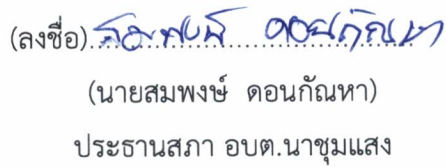 (ลงชื่อ)สมพงษ์ ดอนกัณหา
(นายสมพงษ์ ดอนกัณหา)
ประธานสภา อบต.นาชุมแสง